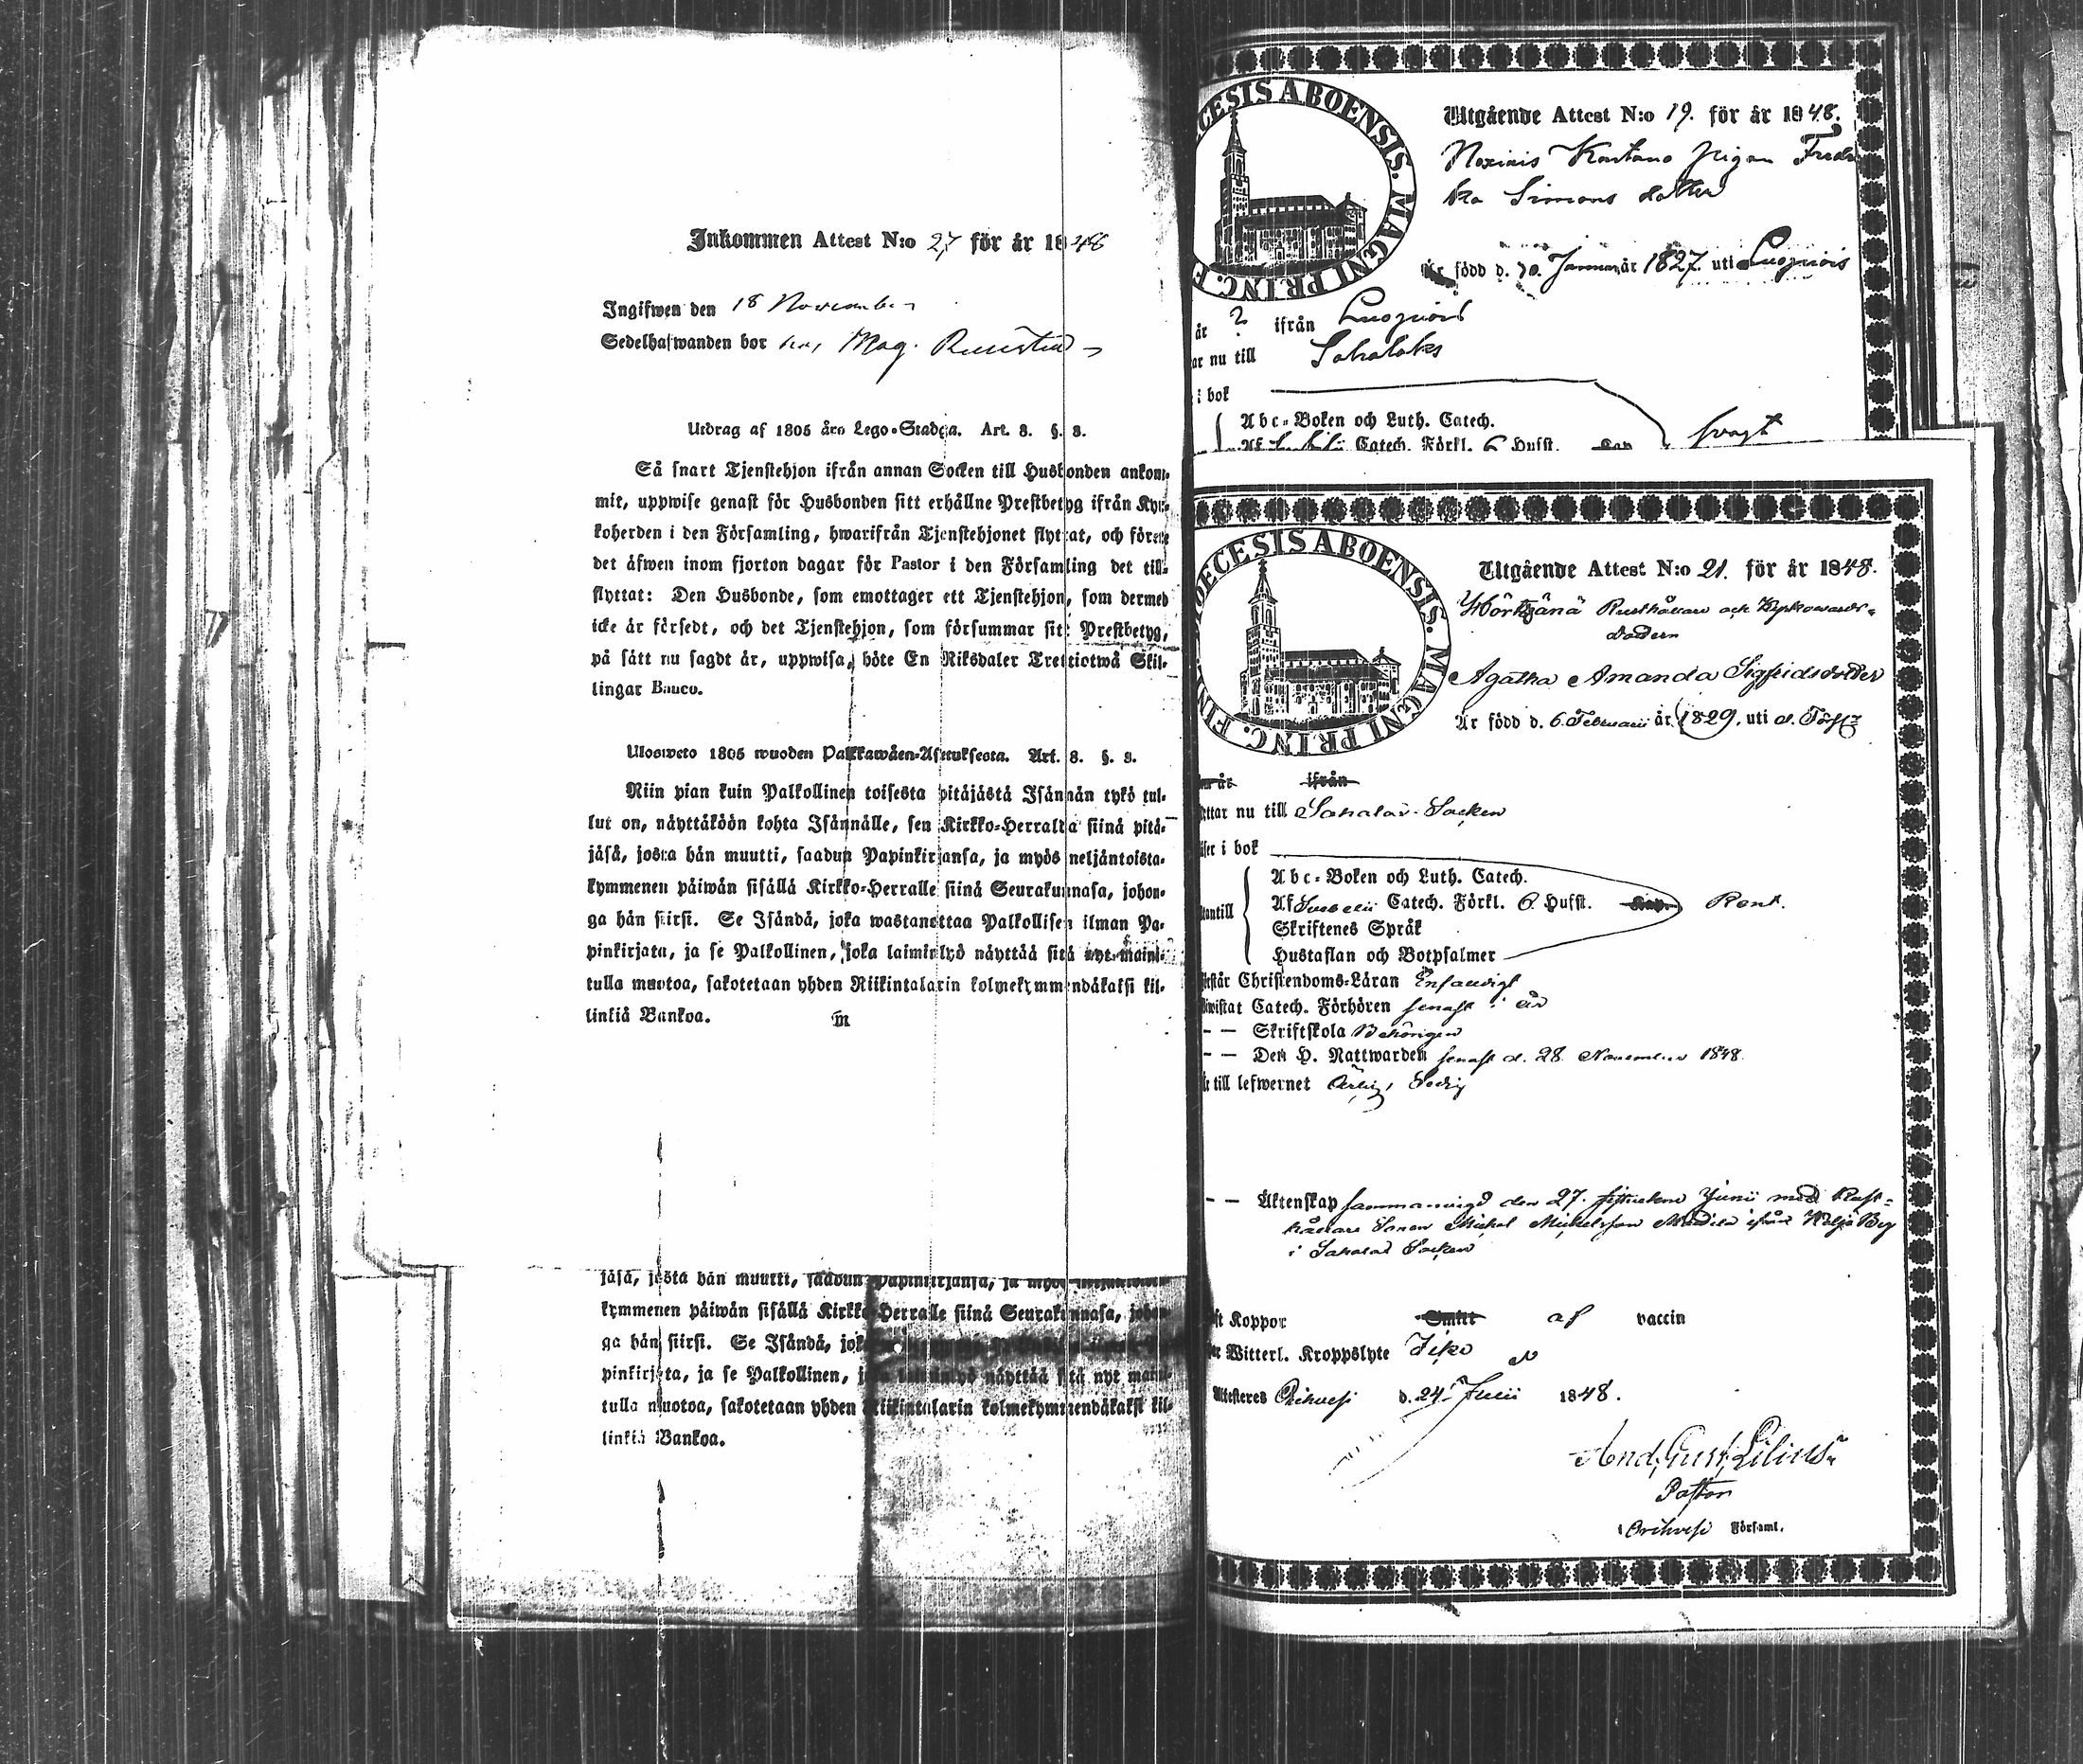 Inkommen Attest N:o 27 för år 1848
Ingifwen den 18 November
Sedelhafwanden bor hos Mag.
Utdrag af 1805 års Lego-Stadga. Art. 8. §. 3.
Så snart Tjenstehjon ifrån annan Socken till Husbonden ankom-
mit, uppwise genast för Husbonden sitt erhållne Prestbetyg ifrån Kyr-
koherden i den Församling, hwarifrån Tjenstehjonet flyttat, och förete
det äfwen inom fjorton dagar för Pastor i den Församling det till-
flyttat: Den Husbonde, som emottager ett Tjenstehjon, som dermed
icke är försedt, och det Tjenstehjon, som försummar sitt Prestbetyg,
på sätt nu sagdt är, uppwisa, böte En Riksdaler Trettiotwå Skil-
lingar Banco.
Ulosweto 1805 wuoden Palkkawäen-Asetuksesta. Art. 8. §. 3.
Niin pian kuin Palkollinen toisesta pitäjästä Isännän tykö tul-
lut on, näyttäköön kohta Isännälle, sen Kirkko-Herralta siinä pitä-
jäsä, josta hän muutti, saadun Papinkirjansa, ja myös neljäntoista-
kymmenen päiwän sisällä Kirkko-Herralle siinä Seurakunnasa, johon-
ga hän siirsi. Se Isändä, joka wastanottaa Palkollisen ilman Pa-
pinkirjata, ja se Palkollinen, joka laiminlyö näyttää sitä nyt maini-
tulla muotoa, sakotetaan yhden Riikintalarin kolmekymmendäkaksi kil-
linkiä Bankoa.
jäsä, josta hän muutti, saadun Papinkirjansa, ja myös
kymmenen päiwän sisällä Kirkko-Herralle siinä Seurakunnasa, johon-
ga hän siirsi. Se Isändä, joka
pinkirjata, ja se Palkollinen, joka laiminlyö näyttää sitä nyt maini-
tulla muotoa, sakotetaan yhden Riikintalarin kolmekymmendäkaksi kil-
linkiä Bankoa.
CESIS ABOENSIS. MAGNI PRINC. F
Utgående Attest N:o 19. för år 1848.
pigan Fredri
ka Simons dotter
Är född d. 10. Januari år 1827. uti Luopiois
år ? ifrån Luopiois
ar nu till Sahalaks
i bok
Abc-Boken och Luth. Catech.
Af Catech. Förkl. 6 Hufst. Cap. svagt
DIOECESIS ABOENSIS. MAGNI PRINC. FIN
Utgående Attest N:o 21. för år 1848.
Rusthållare och Kyrkovärds-
dottern
Agatha Amanda Sigfridsdotter
Är född d. 6. Februarii år 1829. uti d. Förs:
år ifrån
ttar nu till Sahalax Socken
ser i bok
Abc-Boken och Luth. Catech.
nantill Af Svebelii Catech. Förkl. 6. Hufst. Kap. Rent.
Skriftenes Språk
Hustaflan och Botpsalmer
rstår Christendoms-Läran Enfaldigt
iwistat Catech. Förhören senast i år
- - Skriftskola Behörigen
- - Den H. Nattwarden senast d. 28 November 1848.
är till lefwernet Ärlig, Sedig
- - Äktenskap sammanvigd den 27. sistledne Junii med Rust-
hållare Sonen Michel Michelsson ifrån By
i Sahalax Socken
ft Koppor Smitt af vaccin
er Witterl. Kroppslyte Icke
Attesteres Orihvesi d. 24 Junii 1848.
And. Gust. Lilius
Pastor
i Orihvesi Församl.